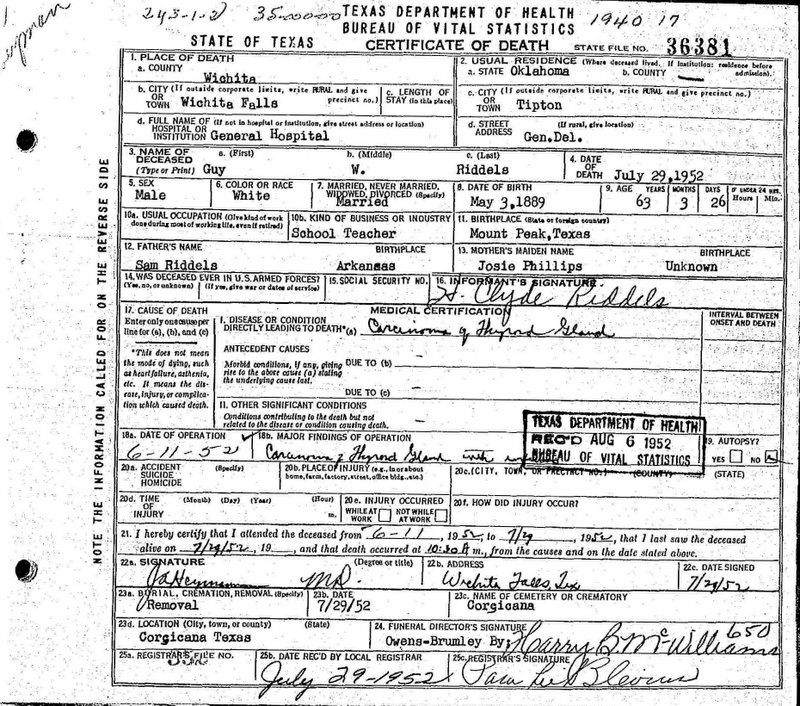 243-1-2 35-00000 TEXAS DEPARTMENT OF HEALTH 1940 17
BUREAU OF VITAL STATISTICS
STATE OF TEXAS CERTIFICATE OF DEATH STATE FILE NO. 36381
1. PLACE OF DEATH
a. COUNTY
Wichita
2. USUAL RESIDENCE (Where deceased lived. If institution: residence before admission).
a. STATE Oklahoma b. COUNTY
b. CITY (If outside corporate limits, write RURAL and give precinct no.)
OR TOWN Wichita Falls
c. LENGTH OF STAY (in this place)
c. CITY (If outside corporate limits, write RURAL and give precinct no.)
OR TOWN Tipton
d. FULL NAME OF (If not in hospital or institution, give street address or location)
HOSPITAL OR INSTITUTION General Hospital
d. STREET ADDRESS (If rural, give location)
Gen.Del.
3. NAME OF DECEASED (Type or Print)
a. (First) b. (Middle) c. (Last)
Guy W. Riddels
4. DATE OF DEATH July 29,1952
5. SEX
Male
6. COLOR OR RACE
White
7. MARRIED, NEVER MARRIED, WIDOWED, DIVORCED (Specify)
Married
8. DATE OF BIRTH
May 3,1889
9. AGE YEARS MONTHS DAYS IF UNDER 24 HRS. Hours Min.
63 3 26
10a. USUAL OCCUPATION (Give kind of work done during most of working life, even if retired)
10b. KIND OF BUSINESS OR INDUSTRY
School Teacher
11. BIRTHPLACE (State or foreign country)
Mount Peak,Texas
12. FATHER'S NAME BIRTHPLACE
Sam Riddels Arkansas
13. MOTHER'S MAIDEN NAME BIRTHPLACE
Josie Phillips Unknown
14. WAS DECEASED EVER IN U.S. ARMED FORCES?
(Yes, no, or unknown) (If yes, give war or dates of service)
15. SOCIAL SECURITY NO.
16. INFORMANT'S SIGNATURE
Clyde Riddels
17. CAUSE OF DEATH
Enter only one cause per line for (a), (b), and (c)
*This does not mean the mode of dying, such as heart failure, asthenia, etc. It means the disease, injury, or complication which caused death.
MEDICAL CERTIFICATION
INTERVAL BETWEEN ONSET AND DEATH
I. DISEASE OR CONDITION
DIRECTLY LEADING TO DEATH* (a) Carcinoma of Thyroid Gland
ANTECEDENT CAUSES
Morbid conditions, if any, giving rise to the above cause (a) stating the underlying cause last.
DUE TO (b)
DUE TO (c)
11. OTHER SIGNIFICANT CONDITIONS
Conditions contributing to the death but not related to the disease or condition causing death.
TEXAS DEPARTMENT OF HEALTH
REC'D AUG 6 1952
BUREAU OF VITAL STATISTICS
18a. DATE OF OPERATION
6-11-52
18b. MAJOR FINDINGS OF OPERATION
Carcinoma of Thyroid Gland with
19. AUTOPSY?
YES NO
20a. ACCIDENT SUICIDE HOMICIDE (Specify)
20b. PLACE OF INJURY (e.g., in or about home, farm, factory, street, office bldg., etc.)
20c. (CITY, TOWN, OR PRECINCT NO.) (COUNTY) (STATE)
20d. TIME OF INJURY (Month) (Day) (Year) (Hour) m.
20e. INJURY OCCURRED
WHILE AT WORK NOT WHILE AT WORK
20f. HOW DID INJURY OCCUR?
21. I hereby certify that I attended the deceased from 6-11, 1952, to 7/29, 1952, that I last saw the deceased
alive on 7/29/52, 19 , and that death occurred at 10:30 A m., from the causes and on the date stated above.
22a. SIGNATURE (Degree or title)
M.D.
22b. ADDRESS
Wichita Falls, Tex
22c. DATE SIGNED
7/29/52
23a. BURIAL, CREMATION, REMOVAL (Specify)
Removal
23b. DATE
7/29/52
23c. NAME OF CEMETERY OR CREMATORY
Corgicana
23d. LOCATION (City, town, or county) (State)
Corgicana Texas
24. FUNERAL DIRECTOR'S SIGNATURE 650
Owens-Brumley By: Harry B. McWilliams
25a. REGISTRAR'S FILE NO.
25b. DATE REC'D BY LOCAL REGISTRAR
July 29-1952
25c. REGISTRAR'S SIGNATURE
Blevins
NOTE THE INFORMATION CALLED FOR ON THE REVERSE SIDE